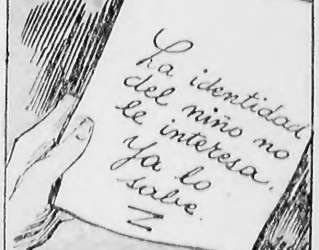 La identidad
del niño no
le interesa.
Ya lo
sabe.
Z